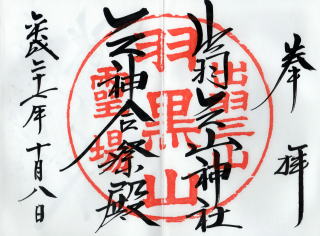 奉拝
出羽三山神社
三神合祭殿
平成二十二年十月八日
出羽三山
羽黒山
霊場